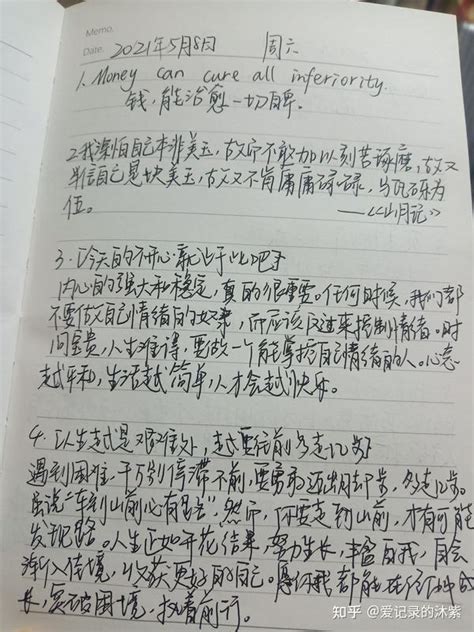 Memo.
Date. 2021年5月8日 周六
1. Money can cure all inferiority.
钱,能治愈一切自卑。
2.我深怕自己本非美玉,故而不敢加以刻苦琢磨,却又
半信自己是块美玉,故又不肯庸庸碌碌,与瓦砾为
伍。
——《山月记》
3.「今天的不开心就止于此吧」
内心的强大和稳定,真的很重要。任何时候,我们都
不要做自己情绪的奴隶,而应该反过来控制情绪。时
间宝贵,人生难得,要做一个能掌控自己情绪的人。心态
越平和,生活越简单,人才会越快乐。
4.「人生越是艰难处,越要往前多走几步」
遇到困难,千万别停滞不前,要勇敢迈出脚步,多走几步。
虽说“车到山前必有路”,然而,只要走到山前,才有可能
发现路。人生正如开花结果,努力生长,丰盈自我,自会
渐入佳境,以收获更好的自己。愿你我都能在
长,突破困境,执着前行。
知乎 @爱记录的沐紫